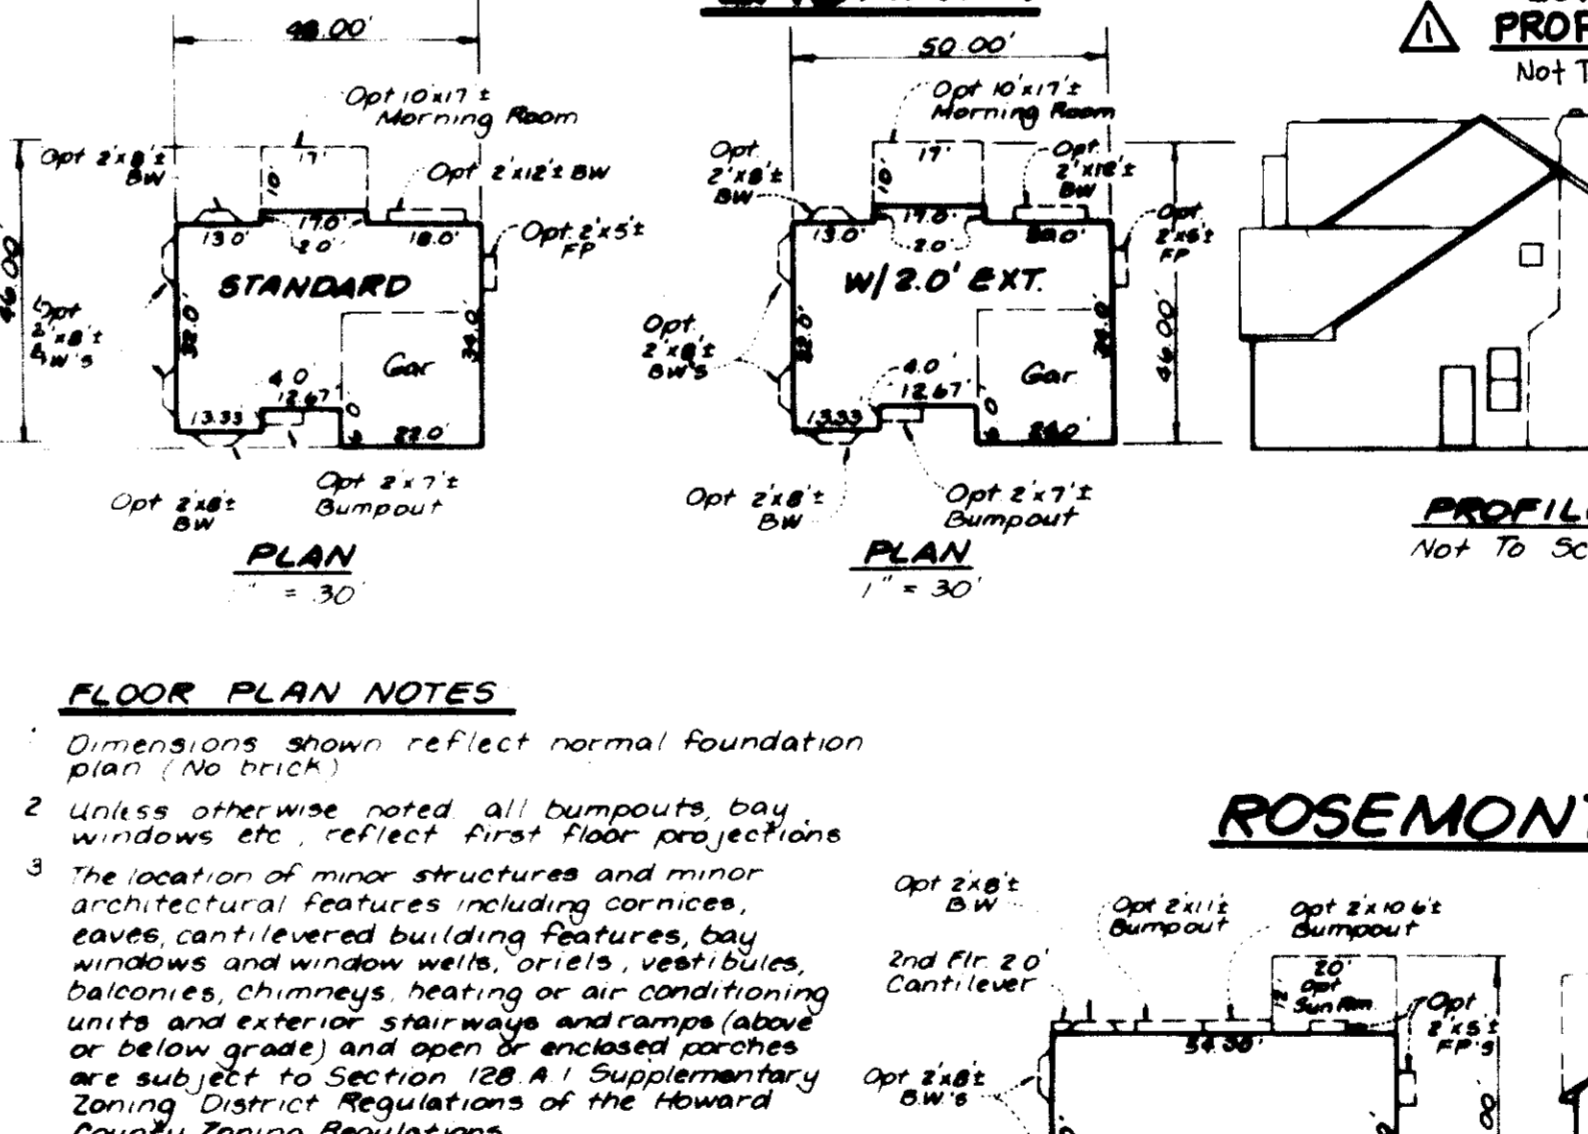 48.00'
Opt 10'x17'±
Morning Room
Opt 2'x8'±
BW
17'
10'
Opt 2'x12'± BW
13.0'
17.0'
2.0'
18.0'
Opt. 2'x5'±
FP
46.00'
STANDARD
Opt
2'x8'±
BW's
32.0'
34.0'
Gar
4.0'
12.67'
13.33'
22.0'
Opt 2'x8'±
BW
Opt 2'x7'±
Bumpout
PLAN
" = 30'
50.00'
Opt 10'x17'±
Morning Room
Opt.
2'x8'±
BW
17'
10'
Opt.
2'x12'±
BW
13.0'
17.0'
2.0'
Opt
FP
W/2.0' EXT.
Opt.
2'x8'±
BW's
46.00'
Gar
4.0'
12.67'
13.33'
24.0'
Opt 2'x8'±
BW
Opt 2'x7'±
Bumpout
PLAN
1" = 30'
1
PROF
Not T
PROFIL
Not To Sc
FLOOR PLAN NOTES
Dimensions shown reflect normal foundation
plan (No brick)
2 Unless otherwise noted all bumpouts, bay
windows etc, reflect first floor projections
3 The location of minor structures and minor
architectural features including cornices,
eaves, cantilevered building features, bay
windows and window wells, oriels, vestibules,
balconies, chimneys, heating or air conditioning
units and exterior stairways and ramps (above
or below grade) and open or enclosed porches
are subject to Section 128.A.1 Supplementary
Zoning District Regulations of the Howard
County Zoning Regulations
ROSEMONT
Opt 2'x8'±
B.W
Opt 2'x11'±
Bumpout
Opt 2'x10.6'±
Bumpout
2nd Flr. 2.0'
Cantilever
20'
Opt
Sun Rm.
12'
Opt
2'x5'±
FP's
Opt 2'x8'±
B.W.'s